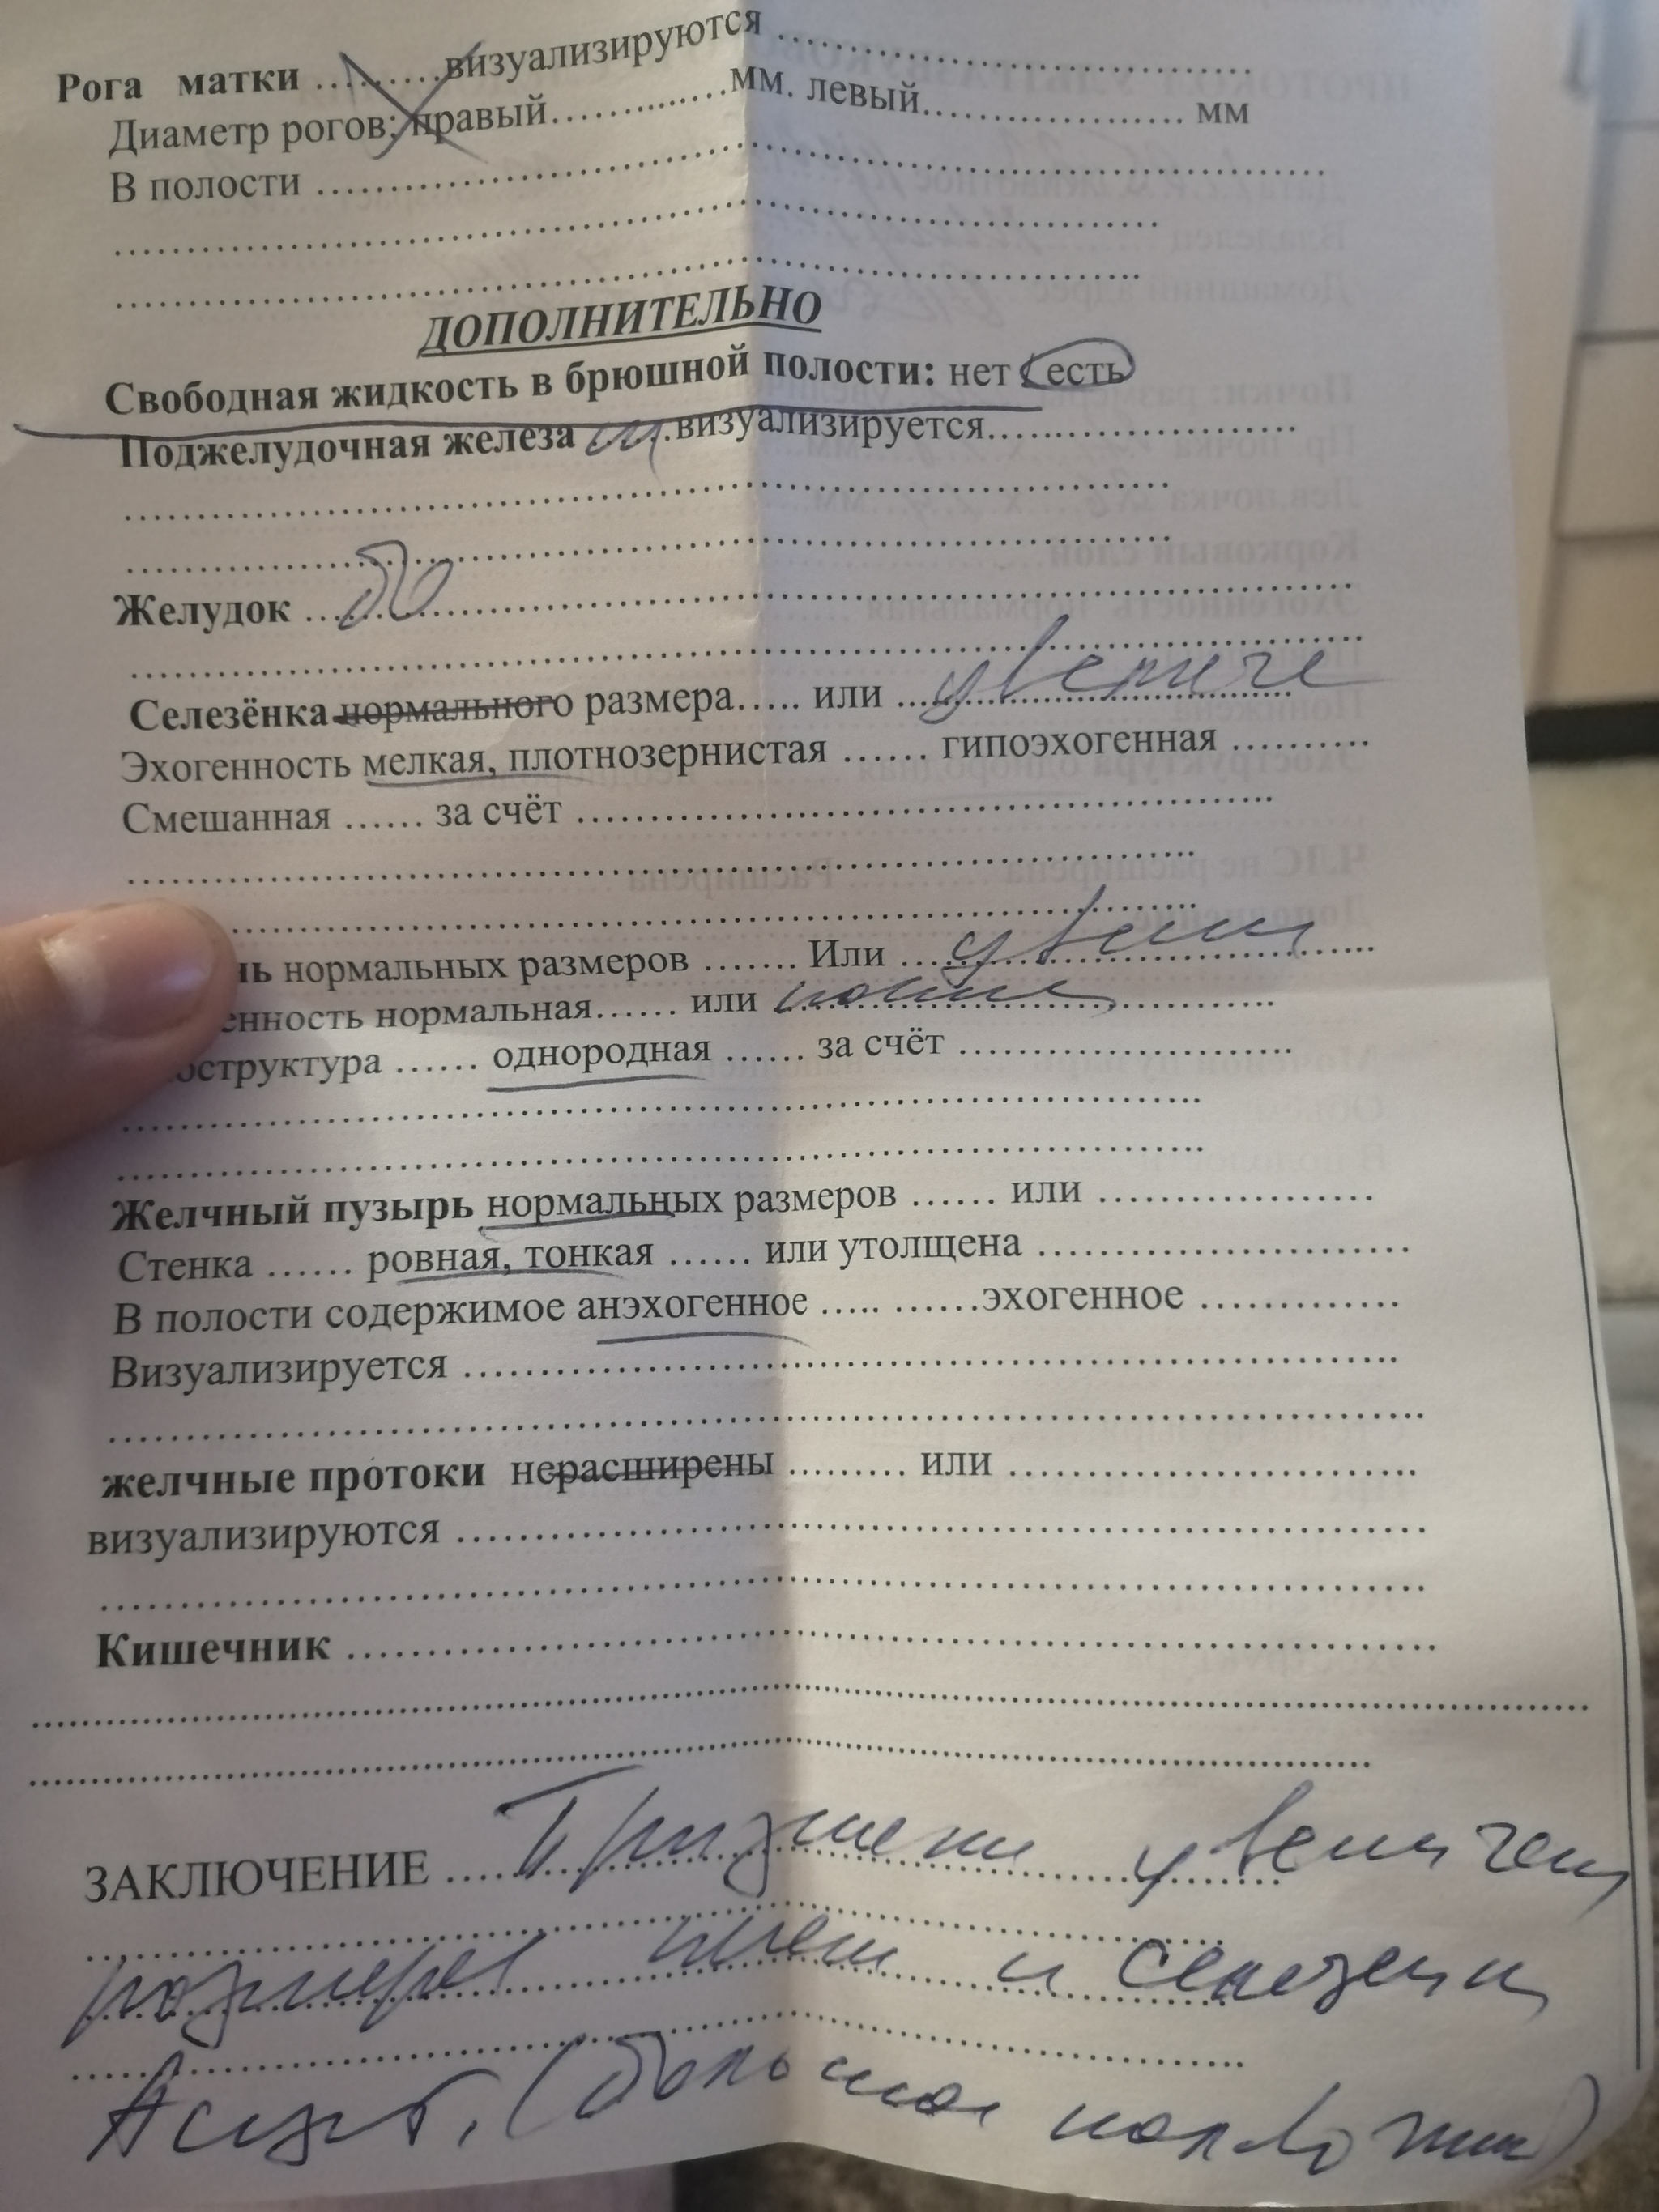 Рога матки ......... визуализируются ..............................
Диаметр рогов; правый................мм. левый..................... мм
В полости ............................................................
............................................................
............................................................
ДОПОЛНИТЕЛЬНО
Свободная жидкость в брюшной полости: нет есть
Поджелудочная железа визуализируется......................
............................................................
............................................................
Желудок ............................................................
............................................................
Селезёнка нормального размера..... или ... увеличе
Эхогенность мелкая, плотнозернистая ...... гипоэхогенная ..........
Смешанная ...... за счёт ..................................................
............................................................
............................................................
нь нормальных размеров ....... Или ... увелич
енность нормальная...... или повыше
оструктура ...... однородная ...... за счёт ........................
............................................................
............................................................
Желчный пузырь нормальных размеров ...... или ....................
Стенка ...... ровная, тонкая ...... или утолщена ..........................
В полости содержимое анэхогенное ..... ......эхогенное ..............
Визуализируется ............................................................
............................................................
желчные протоки нерасширены ......... или ..............................
визуализируются ............................................................
............................................................
Кишечник ............................................................
............................................................
............................................................
ЗАКЛЮЧЕНИЕ .... Признаки увеличен
размеров печени и селезенки
Асцит. (большое количество)